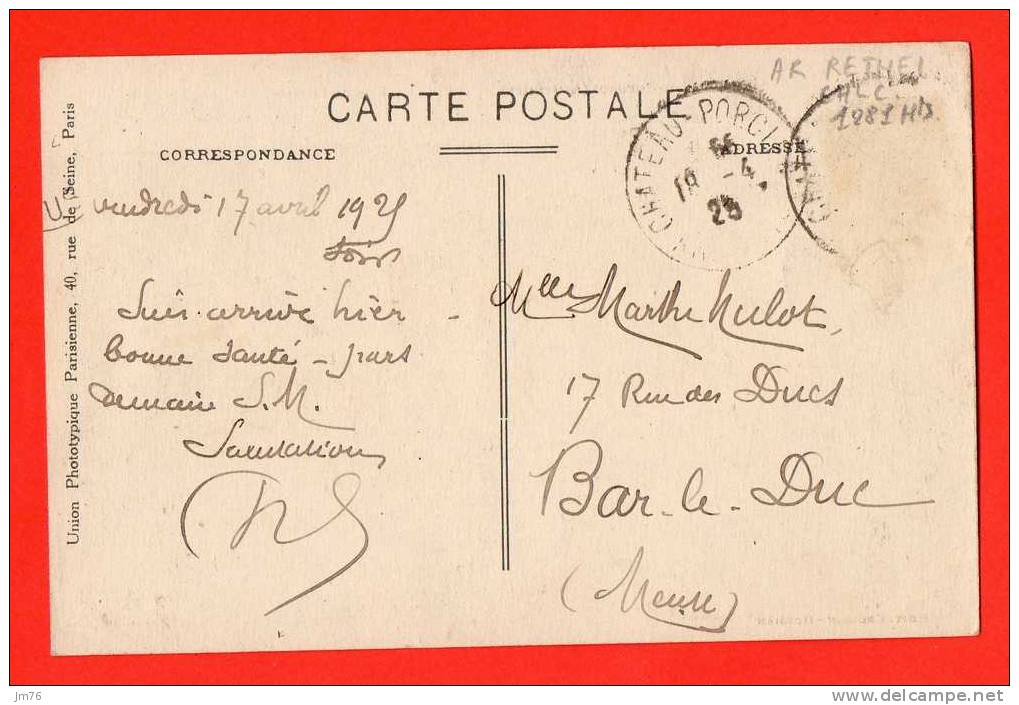 AR RETHEL.
CHLC.
1281 Hb
CARTE POSTALE
CORRESPONDANCE
ADRESSE
CHATEAU-PORCI
18 -4
25
Union Phototypique Parisienne, 40, rue de Seine, Paris
vendredi 17 avril 1925
Soir
Suis arrivé hier -
bonne santé - pars
demain S.M.
Salutations
Mlle Marthe Hulot,
17 Rue des Ducs
Bar-le-Duc
(Meuse)
jm76
www.delcampe.net